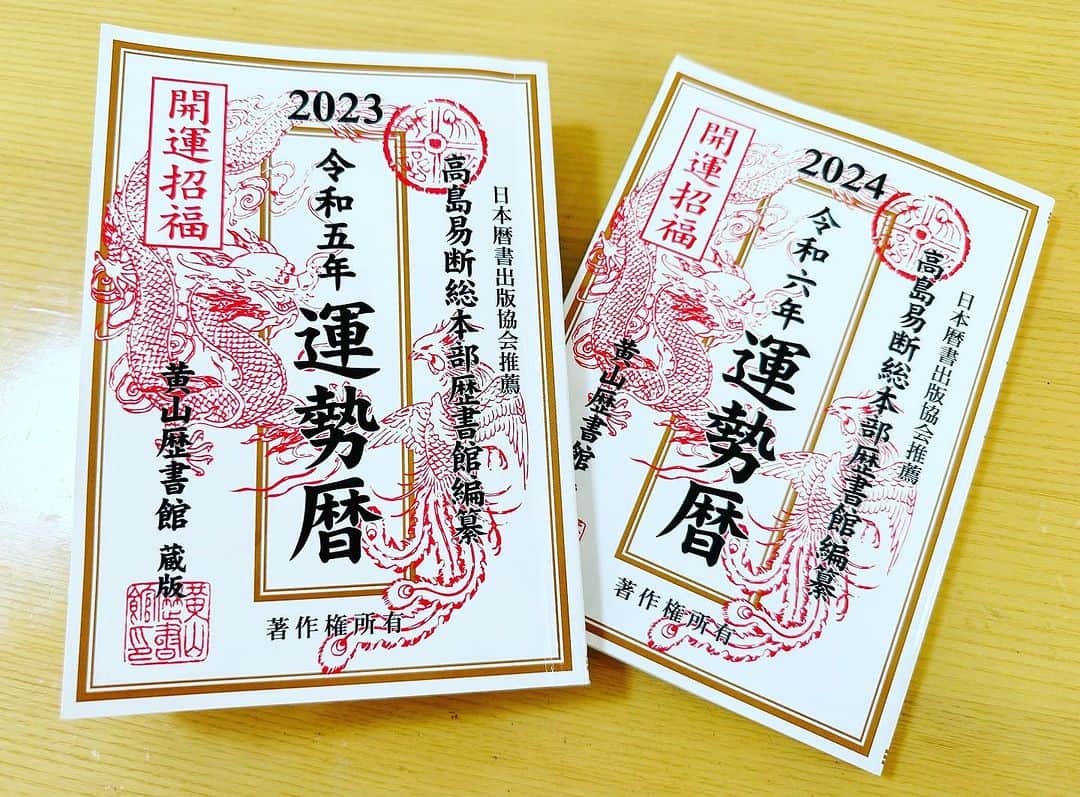 2023
日本暦書出版協会推薦
高島易断総本部歴書館編纂
令和五年 運勢暦
開運招福
黄山歴書館 蔵版
著作権所有
2024
日本暦書出版協会推薦
高島易断総本部歴書館編纂
令和六年 運勢暦
開運招福
黄山歴書館
著作権所有